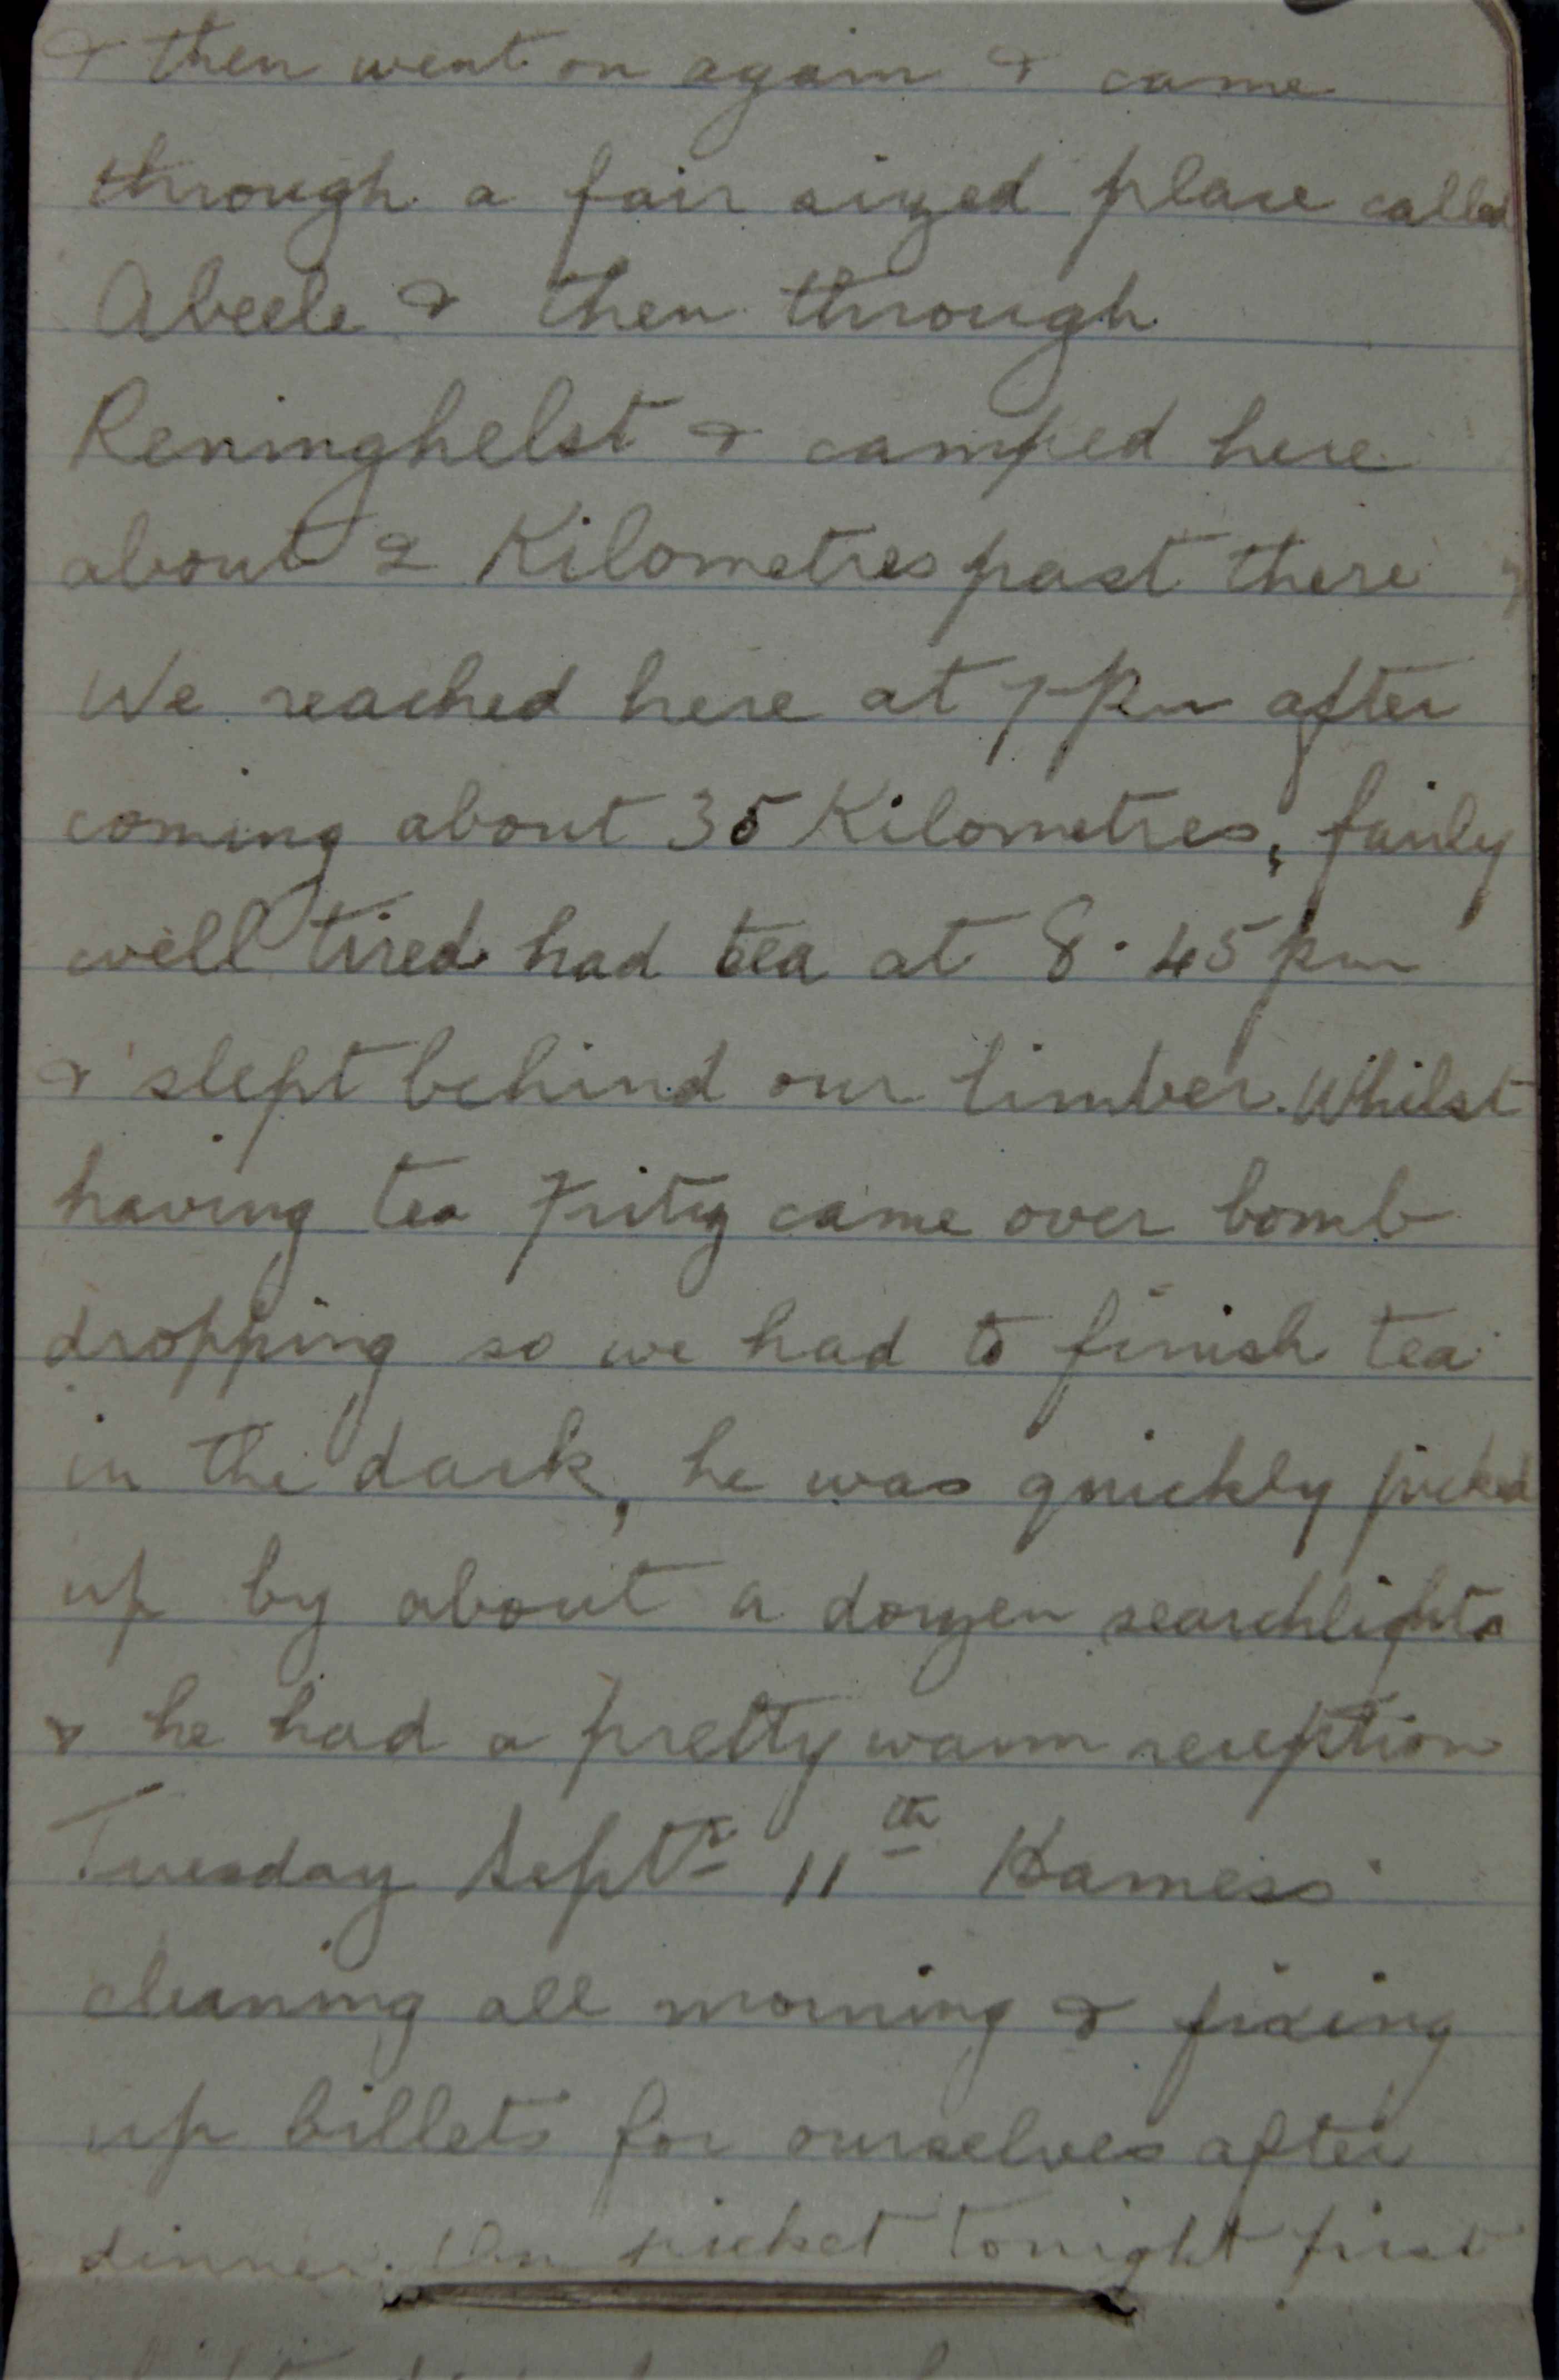 & then went on again & came
through a fair sized place called
Abeele & then through
Reninghelst & camped here
about 2 Kilometres past there
We reached here at 7 pm after
coming about 35 Kilometres, fairly
well tired had tea at 8.45 pm
& slept behind our limber. Whilst
having tea Fritz came over bomb
dropping so we had to finish tea
in the dark, he was quickly picked
up by about a dozen searchlights
& he had a pretty warm reception
Tuesday Septr 11th Harness
cleaning all morning & fixing
up billets for ourselves after
dinner. On picket tonight first